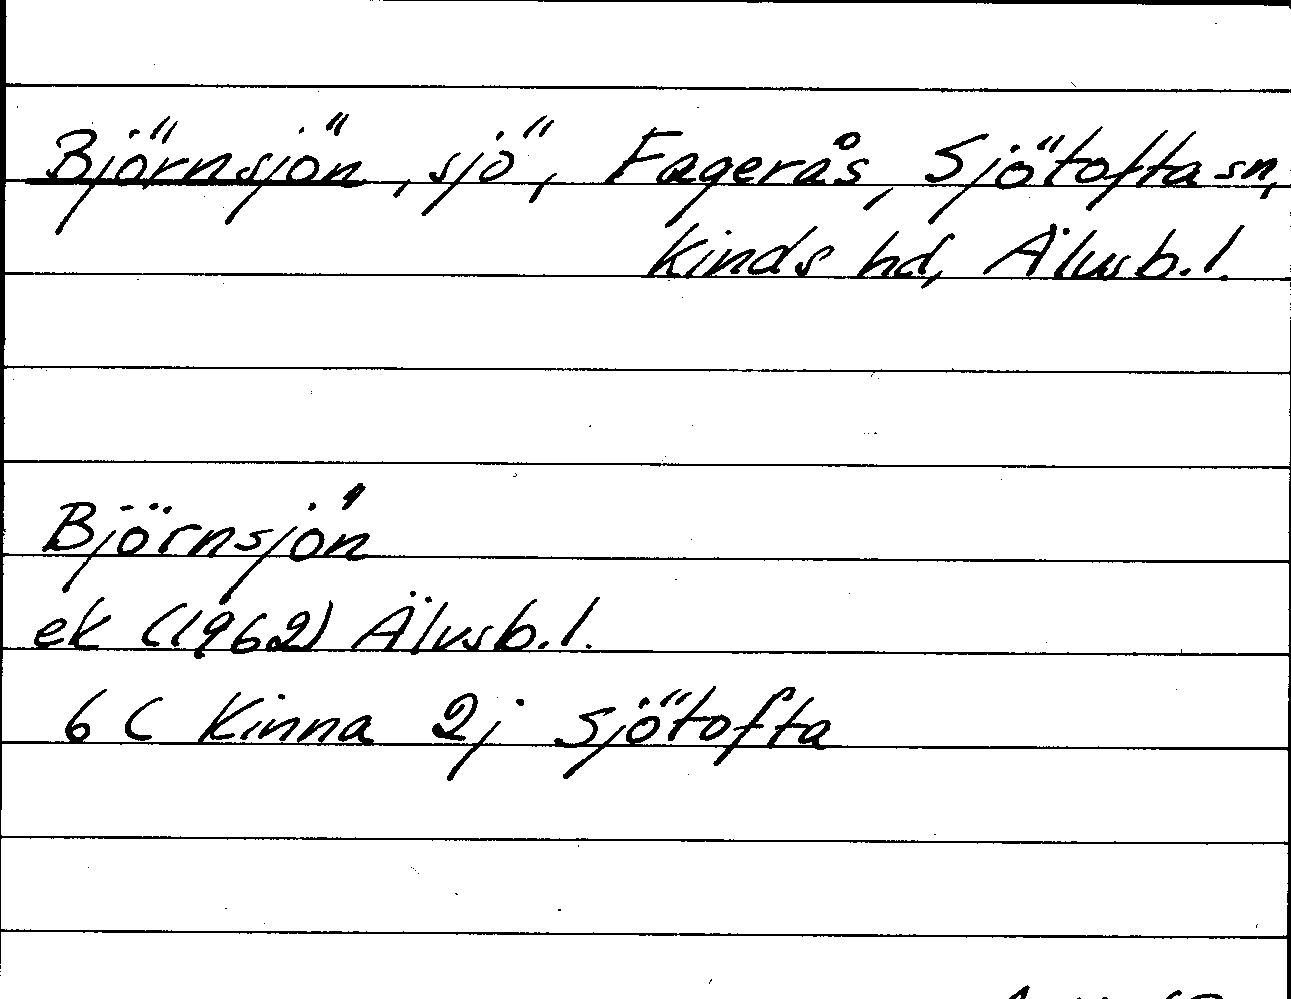 Björnsjön, sjö, Fagerås, Sjötofta sn,
Kinds hd, Älvsb. l.
Björnsjön
ek (1962) Älvsb. l.
6 C Kinna 2j Sjötofta